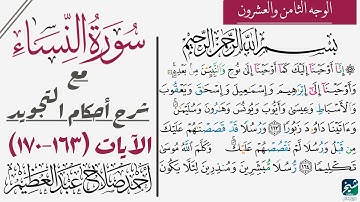 الوجه الثامن والعشرون
سُورَةُ النِّسَاء
مع
شرح أحكام التجويد
الآيات (١٦٣-١٧٠)
أحمد صلاح عبد العظيم
بِسْمِ ٱللَّهِ ٱلرَّحْمَٰنِ ٱلرَّحِيمِ
۞إِنَّآ أَوْحَيْنَآ إِلَيْكَ كَمَآ أَوْحَيْنَآ إِلَىٰ نُوحٍ وَٱلنَّبِيِّـۧنَ مِنۢ بَعْدِهِۦۚ
وَأَوْحَيْنَآ إِلَىٰٓ إِبْرَٰهِيمَ وَإِسْمَٰعِيلَ وَإِسْحَٰقَ وَيَعْقُوبَ
وَٱلْأَسْبَاطِ وَعِيسَىٰ وَأَيُّوبَ وَيُونُسَ وَهَٰرُونَ وَسُلَيْمَٰنَۚ
وَءَاتَيْنَا دَاوُۥدَ زَبُورًا ١٦٣ وَرُسُلًا قَدْ قَصَصْنَٰهُمْ عَلَيْكَ
مِن قَبْلُ وَرُسُلًا لَّمْ نَقْصُصْهُمْ عَلَيْكَۚ وَكَلَّمَ ٱللَّهُ مُوسَىٰ
تَكْلِيمًا ١٦٤ رُّسُلًا مُّبَشِّرِينَ وَمُنذِرِينَ لِئَلَّا يَكُونَ